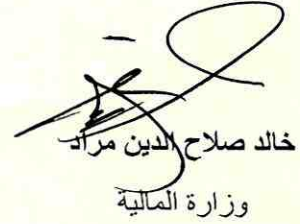 خالد صلاح الدين مراد
وزارة المالية